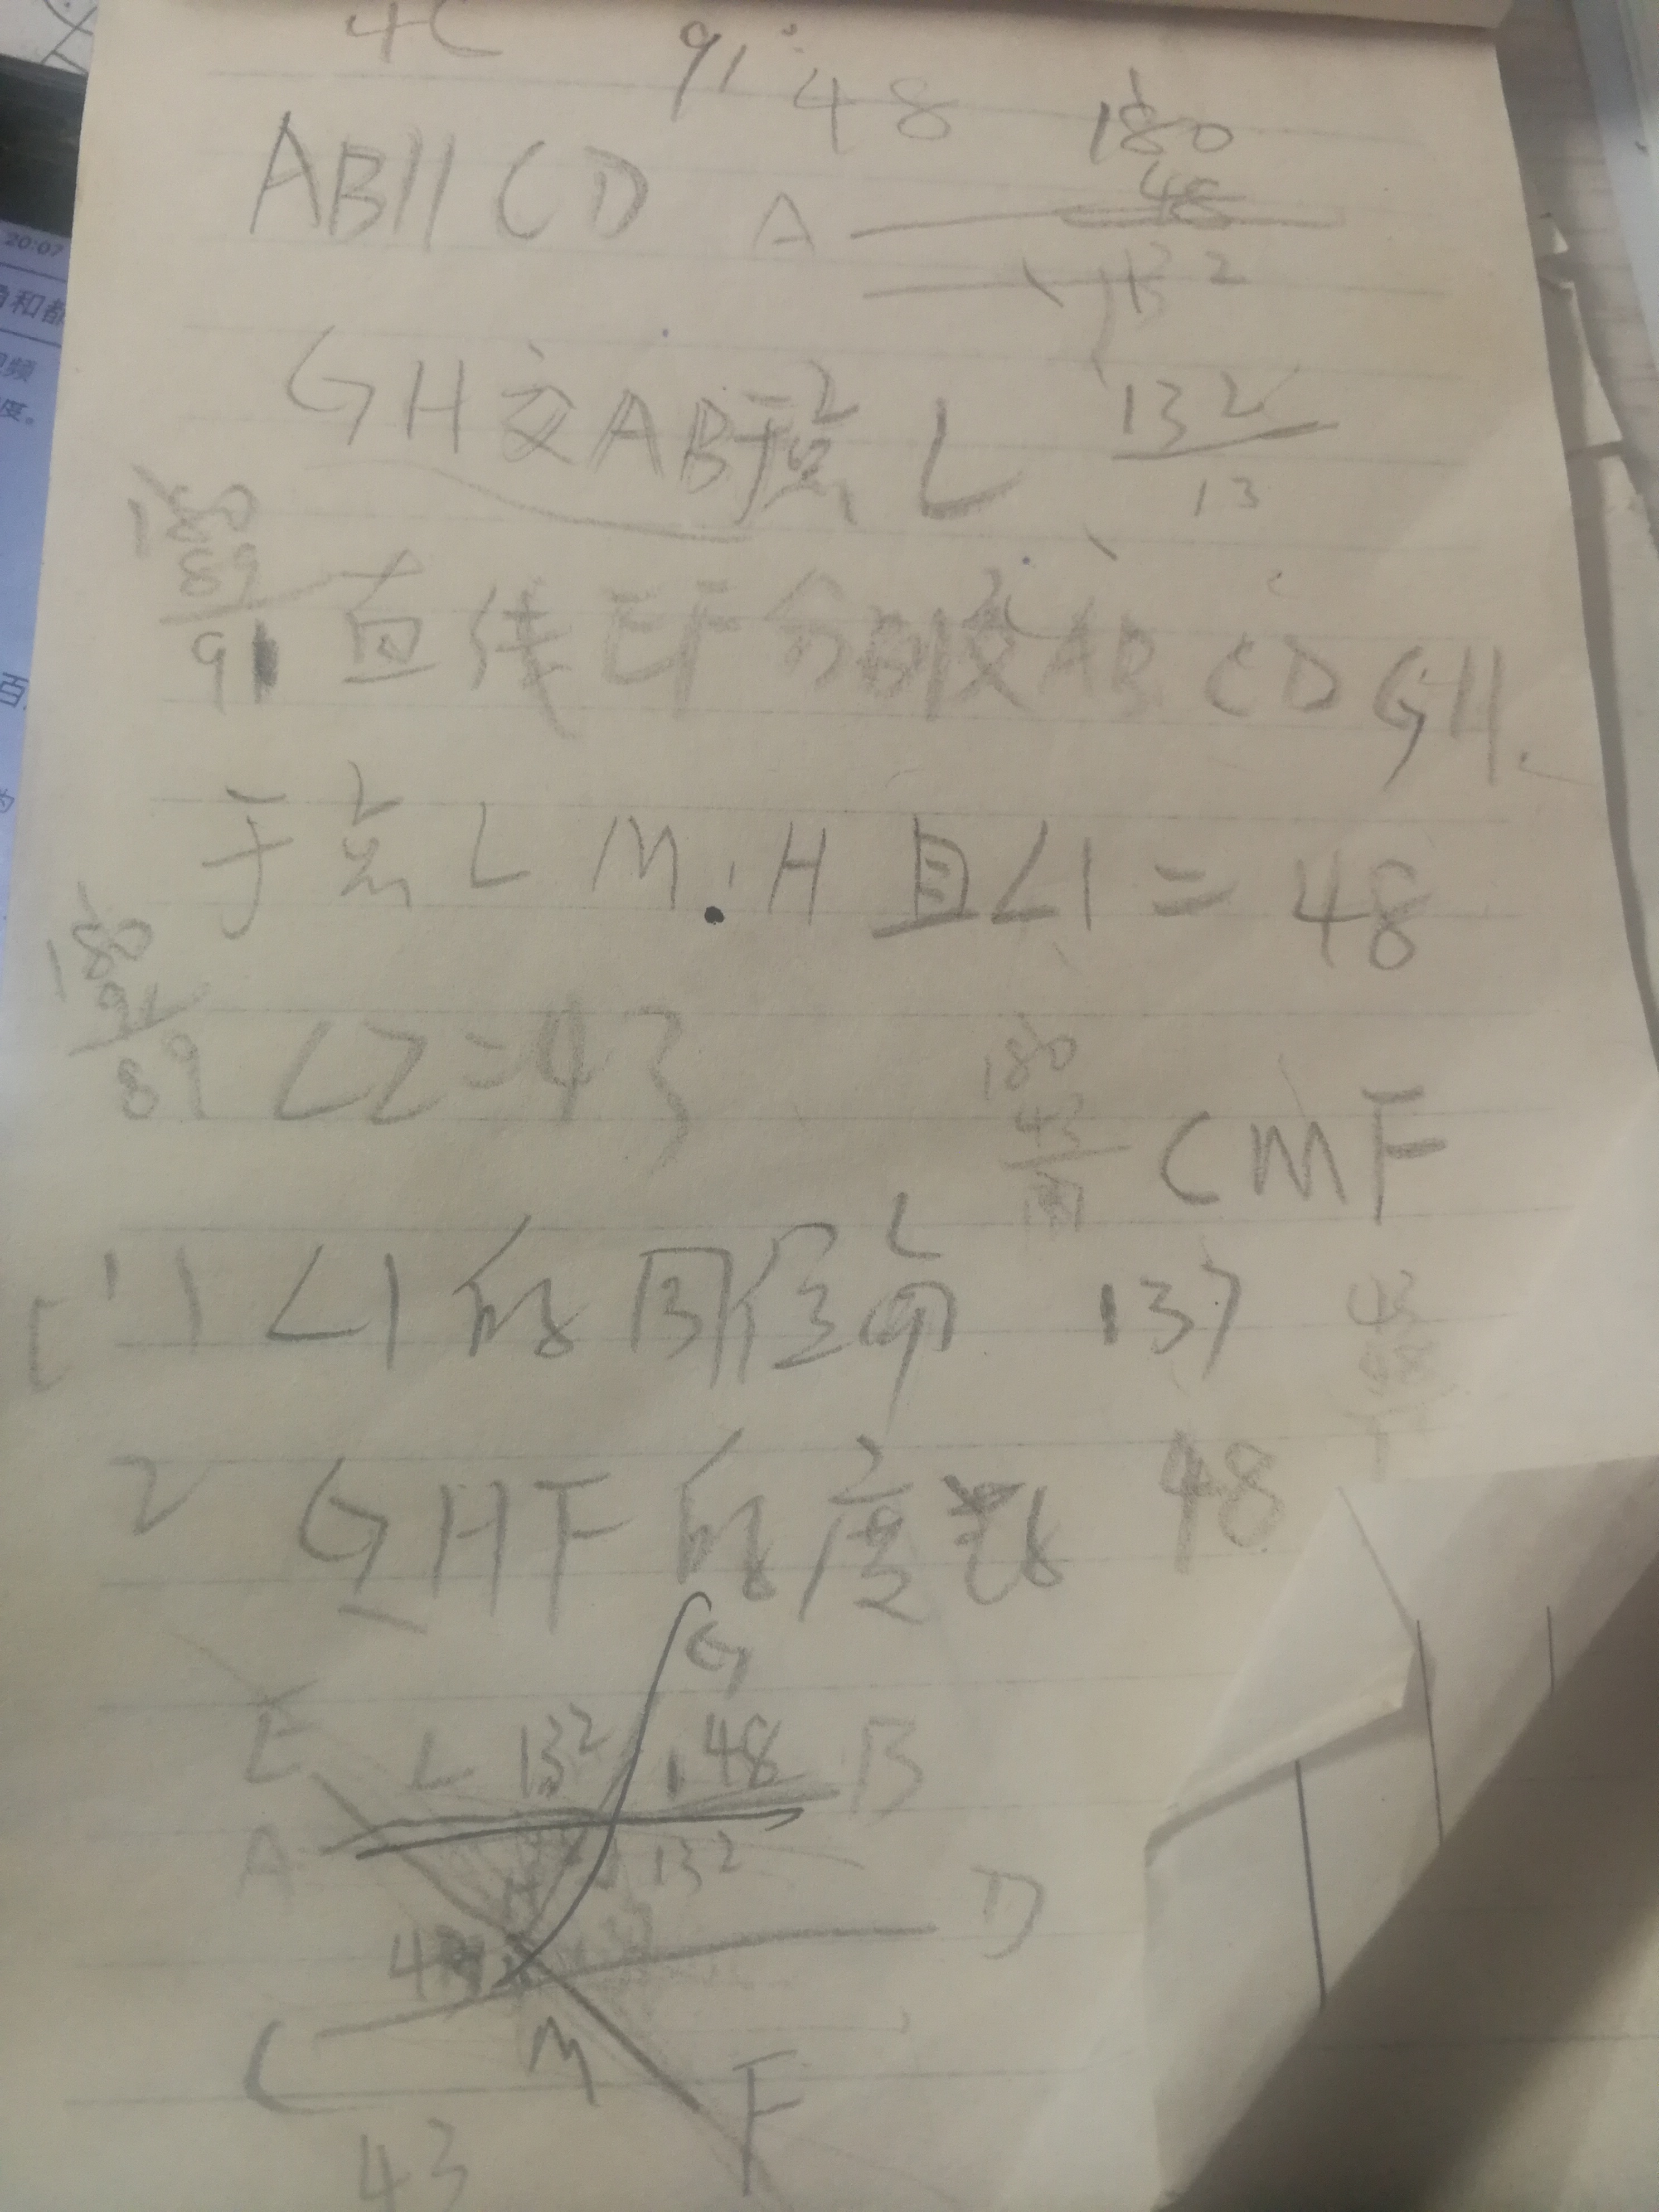 4C 91° 48
180
ABIICD A 48
132
GH交AB于点L 132
13
180
89
91 直线EF分别交AB CD GH.
于点L M.H 且∠1=48
180
91
89 ∠2=43
180
43 CMF
137
1 ∠1的同位角
43
48
2 GHF的度数 48
G
E L 132 1 48 B
A 132
H D
4
C M F
43
20:07
角和都
视频
度。
百
为